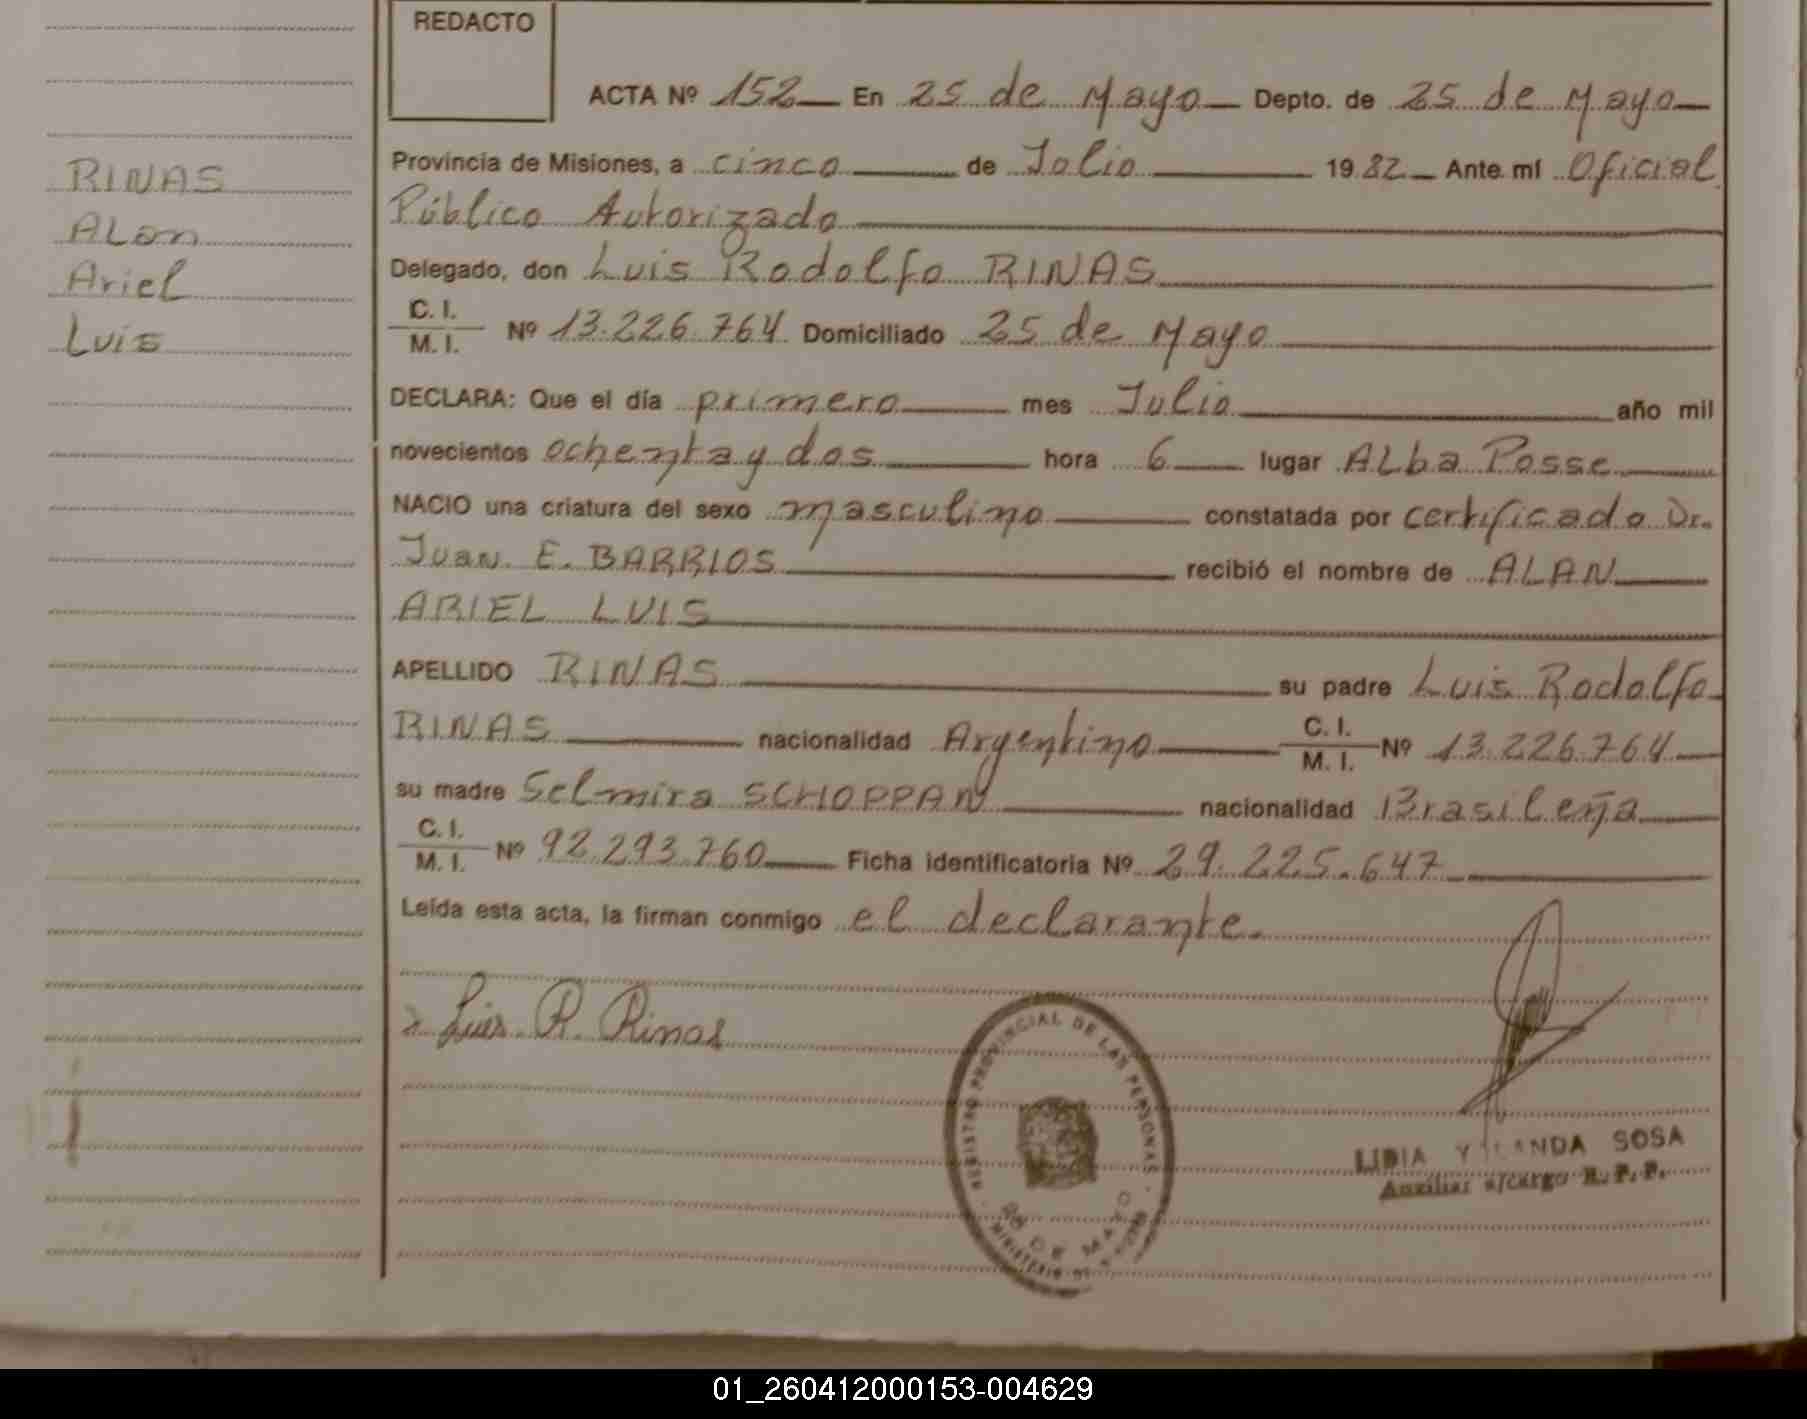 REDACTO
ACTA Nº 152 En 25 de Mayo Depto. de 25 de Mayo
Provincia de Misiones, a cinco de Julio 1982 Ante mí Oficial
Público Autorizado
Delegado, don Luis Rodolfo RINAS
C. I.
M. I. Nº 13.226.764 Domiciliado 25 de Mayo
DECLARA: Que el día primero mes Julio año mil
novecientos ochenta y dos hora 6 lugar Alba Posse
NACIO una criatura del sexo masculino constatada por certificado Dr.
Juan E. BARRIOS recibió el nombre de ALAN
ARIEL LUIS
APELLIDO RINAS su padre Luis Rodolfo
RINAS nacionalidad Argentino C. I. M. I. Nº 13.226.764
su madre Selmira SCHOPPAN nacionalidad Brasileña
C. I.
M. I. Nº 92.293.760 Ficha identificatoria Nº 29.225.647
Leída esta acta, la firman conmigo el declarante.
Luis R. Rinas
REGISTRO PROVINCIAL DE LAS PERSONAS
25 DE MAYO
MINISTERIO DE
LIDIA YOLANDA SOSA
Auxiliar a/cargo R.P.P.
RINAS
Alan
Ariel
Luis
01_260412000153-004629